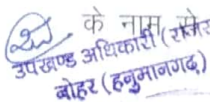 के नाम से
उपखण्ड अधिकारी (राजस्व
नोहर (हनुमानगढ़)